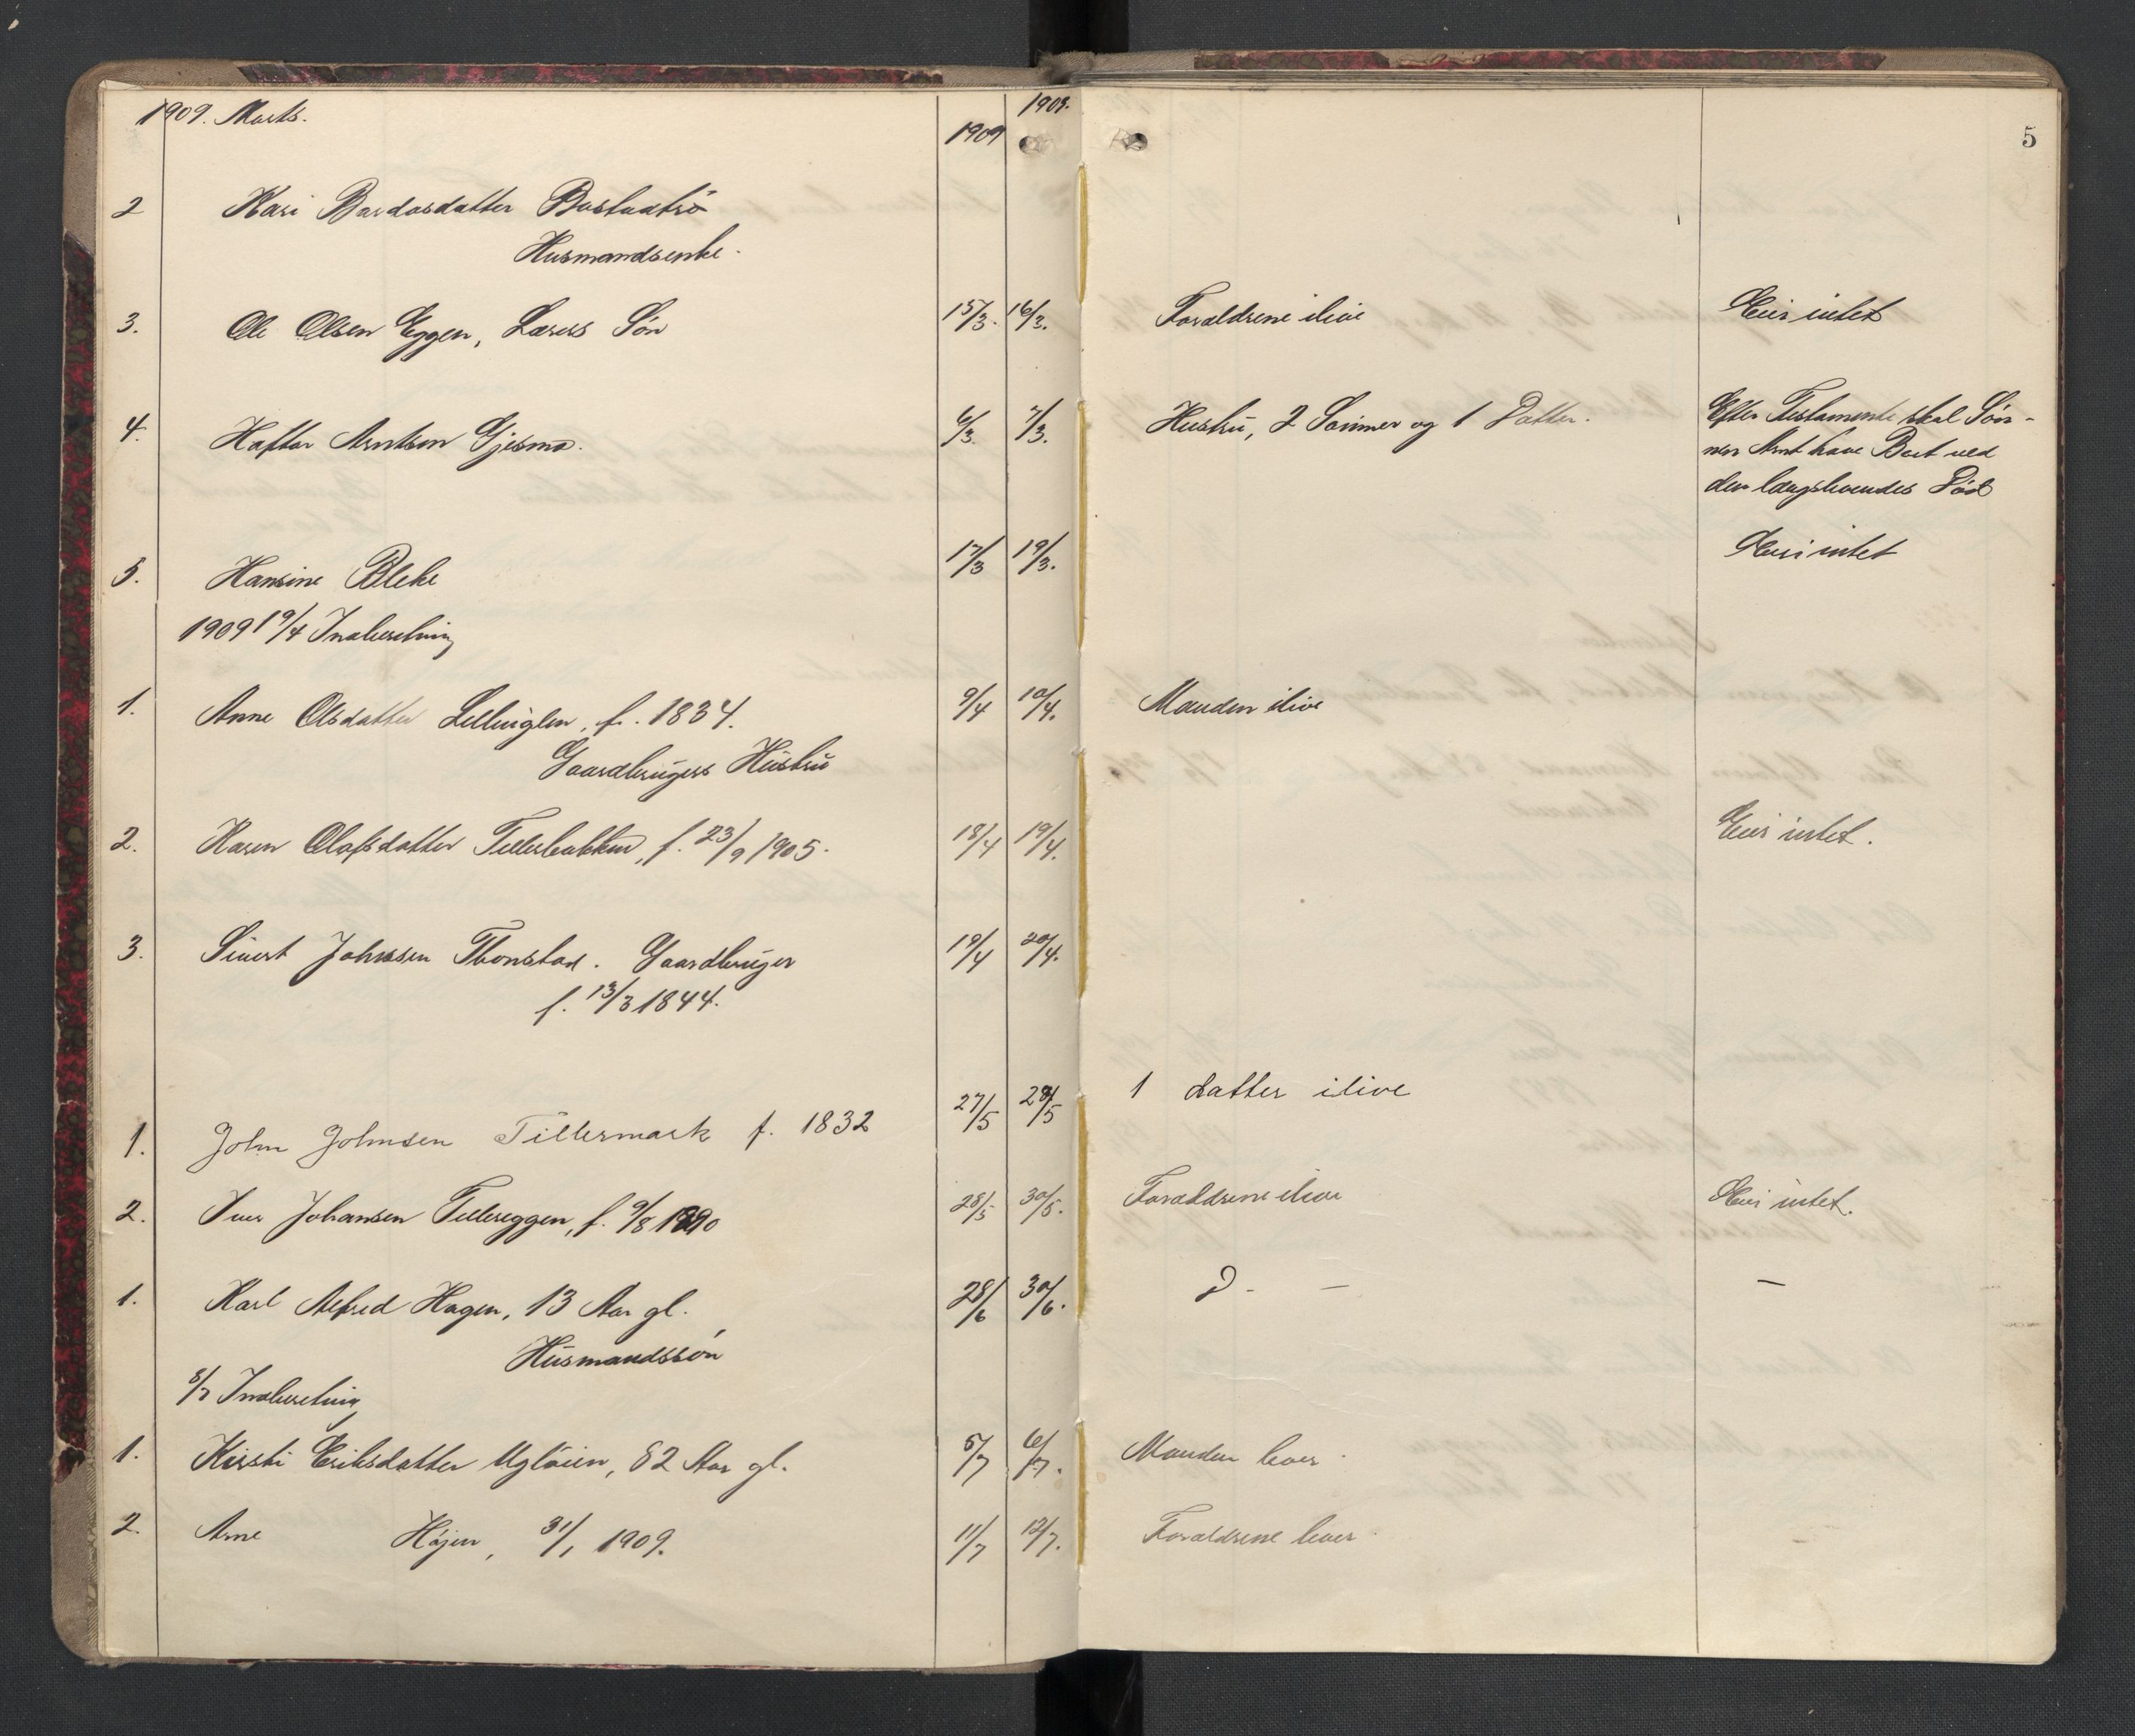 1909. Marts. 1909 1909.
5
2 Kari Bardosdatter
Husmandsenke.
3. Ole Olsen Eggen, Lærers Søn 15/3. 16/3. Forældrene ilive Eier intet
4. Haftor Arntsen Gjesmo. 6/3. 7/3. Hustru, 2 Sønner og 1 Datter. Efter Testamente skal Søn-
nen Arnt have Boet ved
den længstlevendes Død
5. Hansine Bleke 17/3 19/3. Eier intet
1909 19/4 Indberetning
1. Anne Olsdatter f. 1834. 9/4 10/4. Manden ilive
Gaardbrugers Hustru
2. Karen Olafsdatter Tillerbakken, f. 23/9 1905. 18/4 19/4. Eier intet.
3. Sivert Johnssen Thonstad. Gaardbruger 19/4 20/4.
f. 13/3 1844.
1. John Johnsen Tillermark f. 1832 27/5 28/5 1 datter ilive
2. Iver Johansen Tillereggen, f. 9/8 1890 28/5 30/5. Forældrene ilive Eier intet.
1. Karl Alfred Hagen, 13 Aar gl. 28/6 30/6. D - — —
Husmandssøn
8/7 Indberetning
1. Kirsti Eriksdatter Ugløien, 82 Aar gl. 5/7 6/7. Manden lever.
2. Arne Højen, 31/1 1909. 11/7 12/7. Forældrene lever. -